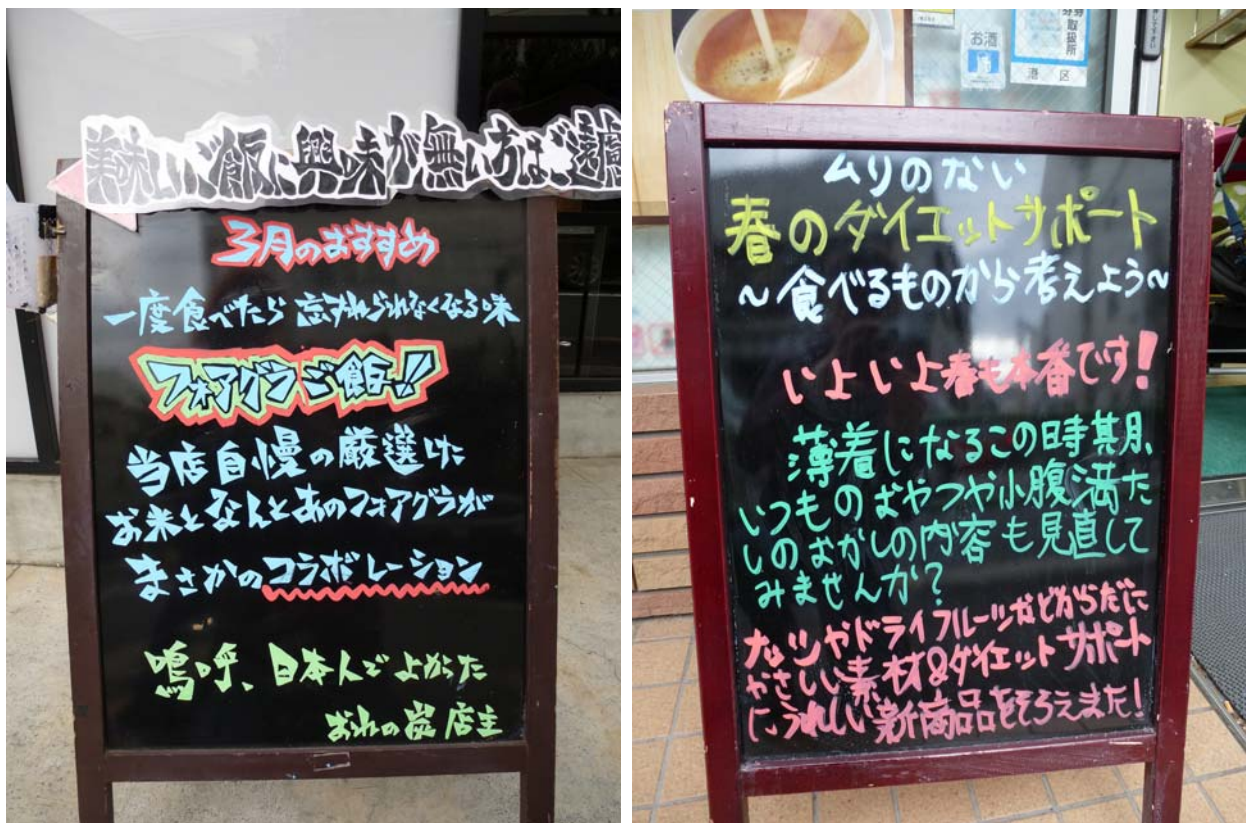 美味しいご飯に興味が無い方はご遠慮
3月のおすすめ
一度食べたら 忘すれられなくなる味
フォアグラご飯!!
当店自慢の厳選した
お米となんとあのフォアグラが
まさかのコラボレーション
嗚呼、日本人でよかった
おれの炭 店主
お酒
取扱所
港区
ムリのない
春のダイエットサポート
~食べるものから考えよう~
いよいよ春も本番です!
薄着になるこの時期、
いつものおやつや小腹満た
しのおかしの内容も見直して
みませんか?
ナッツやドライフルーツなどからだに
やさしい素材&ダイエットサポート
にうれしい新商品をそろえました!